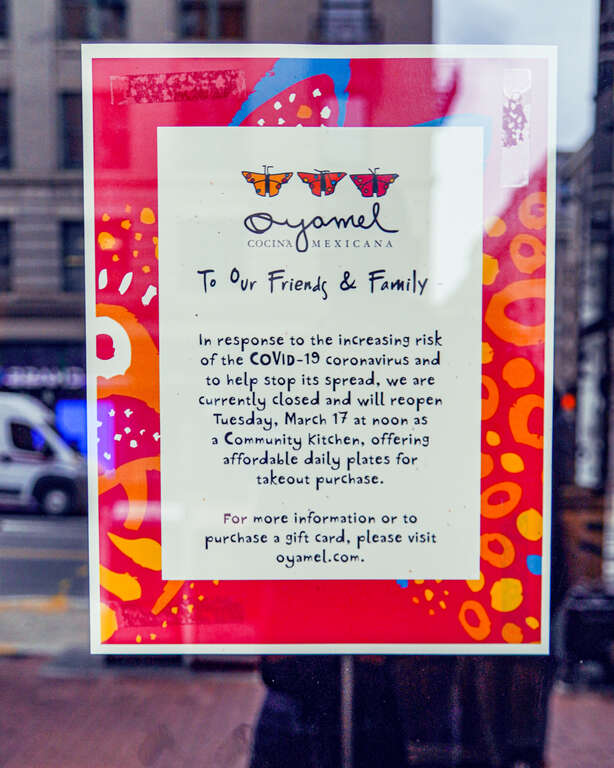 oyamel
COCINA MEXICANA
To Our Friends & Family
In response to the increasing risk
of the COVID-19 coronavirus and
to help stop its spread, we are
currently closed and will reopen
Tuesday, March 17 at noon as
a Community Kitchen, offering
affordable daily plates for
takeout purchase.
For more information or to
purchase a gift card, please visit
oyamel.com.